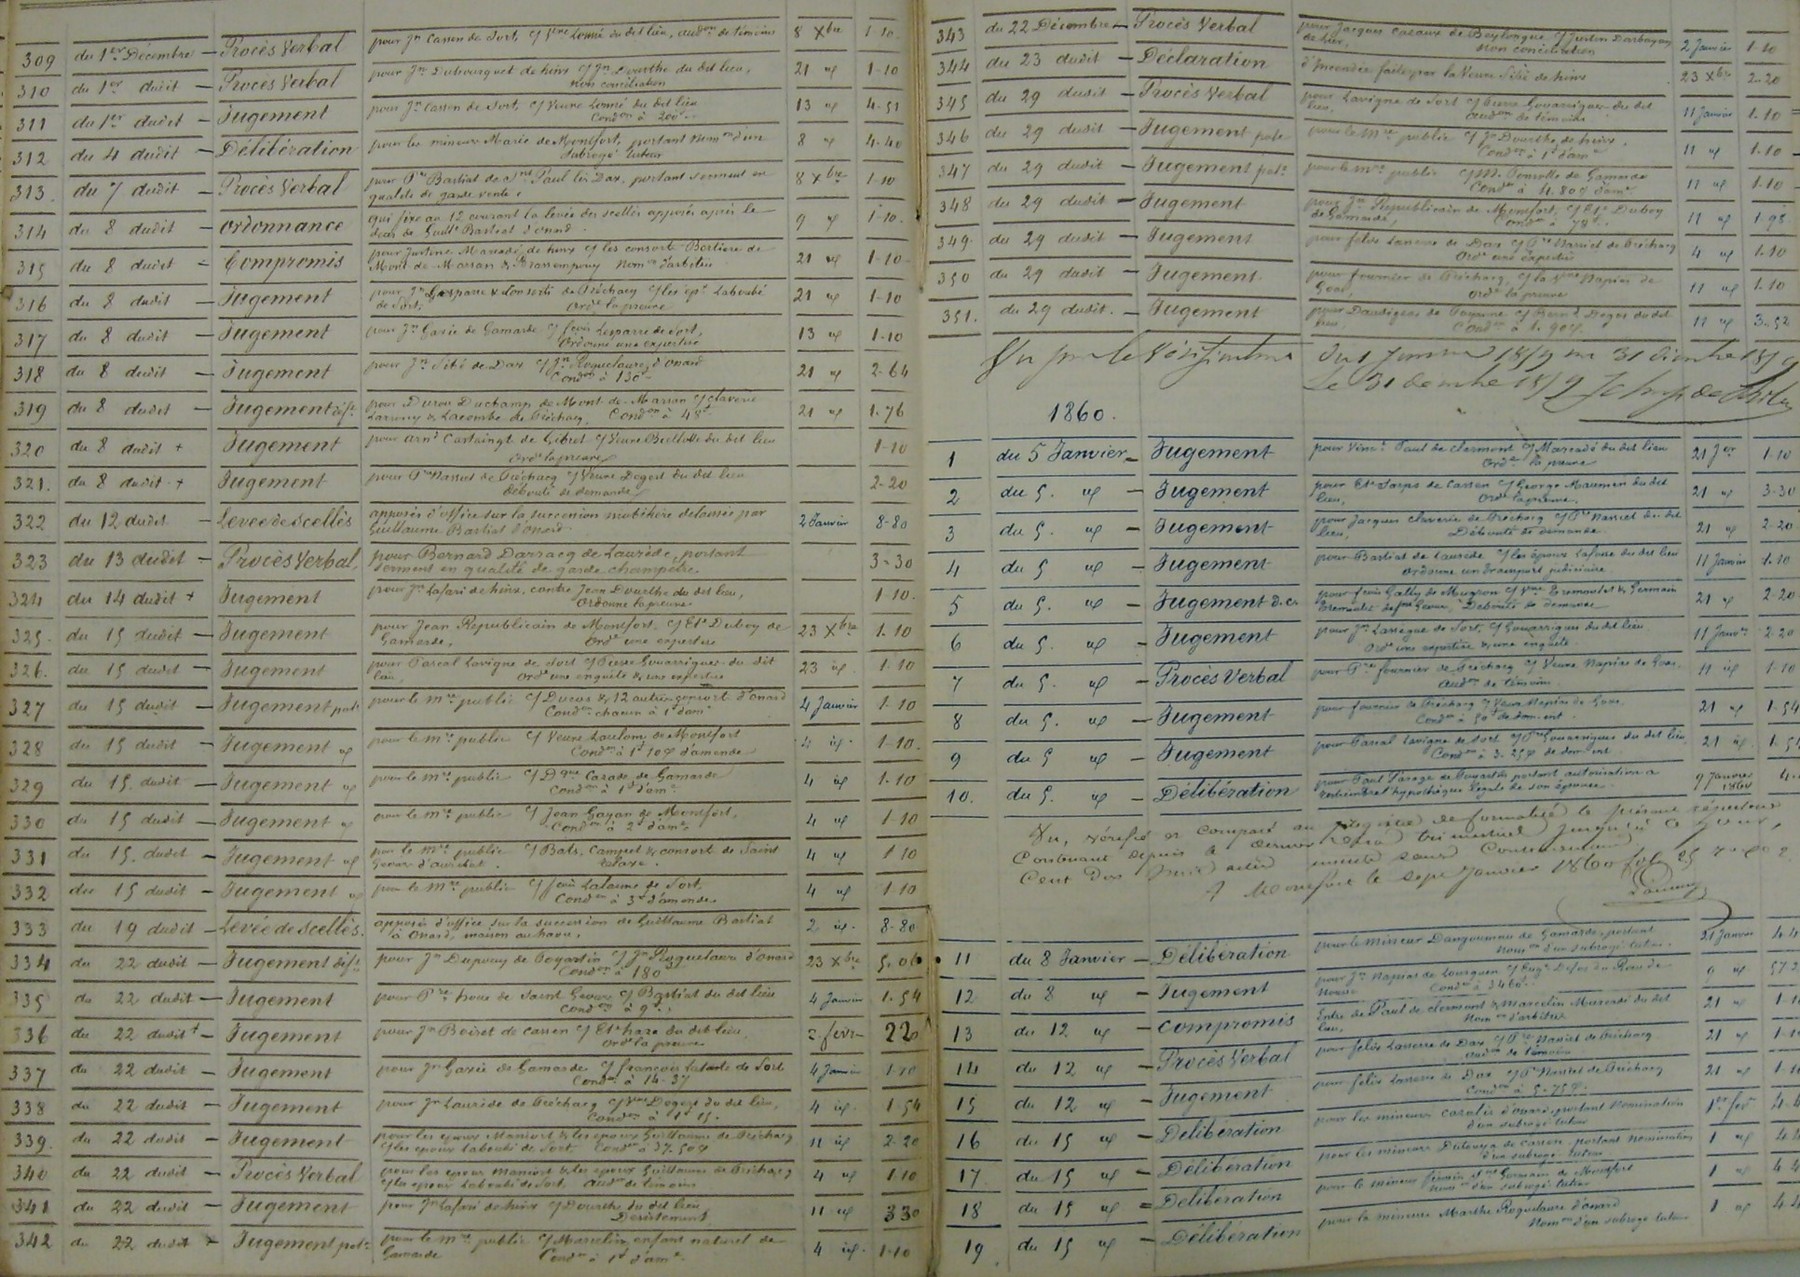 309 du 1er Décembre — Procès Verbal pour Jn Casson de Sort, c/ du dit lieu, audon de témoins 8 Xbre 1-10
310 du 1er dudit — Procès Verbal pour Jn Dubourguet de hinx c/ Jn Dourthe du dit lieu, 21 id 1-10
non conciliation
311 du 1er dudit — Jugement pour Jn Casson de Sort, c/ Veuve Lonné du dit lieu 13 id 4-51
Condon à 200f
312 du 4 dudit — Délibération pour les mineurs Marie de Montfort, portant nomon d'un 8 id 4-40
Subrogé tuteur
313 du 7 dudit — Procès Verbal pour Bastiat de St Paul lès Dax, portant serment en 8 Xbre 1-10
qualité de garde vente
314 du 8 dudit — ordonnance qui fixe au 12 courant la levée des scellés apposés après le 9 id 1-10
décès de Guille Bastiat d'onard
315 du 8 dudit — Compromis pour Justine Marcadé de hinx c/ les consorts de 21 id 1-10
Mont-de-Marsan & Brassempouy nomon d'arbitre
316 du 8 dudit — Jugement pour Jn & consorts de Préchacq c/ les épx Laboubé 21 id 1-10
de Sort. Orde la preuve
317 du 8 dudit — Jugement pour Jn Gaxie de Gamarde c/ Lesparre de Sort, 13 id 1-10
Ordonne une expertise
318 du 8 dudit — Jugement pour Jn Sibé de Dax c/ Jn Roquelaure d'onard 21 id 2-64
Condon à 130
319 du 8 dudit — Jugement déft pour Duron Duchamp de Mont-de-Marsan c/ Claverie 21 id 1-76
& Lacombe de Préchacq, Condon à 48f
320 du 8 dudit + Jugement pour Arnd Castaingt de Gibret c/ Veuve du dit lieu 1-10
Orde la preuve
321. du 8 dudit + Jugement pour Pre Nassiet de Préchacq c/ Veuve Degert du dit lieu 2-20
débouté de demande
322 du 12 dudit — Levée de scellés apposés d'office sur la succession mobilière délaissée par 2 Janvier 8-80
Guillaume Bastiat d'onard
323 du 13 dudit — Procès Verbal, pour Bernard Darracq de Laurède, portant 3-30
Serment en qualité de garde champêtre
324 du 14 dudit + Jugement pour Jn Lafari de hinx, contre Jean Dourthe du dit lieu, 1-10
Ordonne la preuve
325. du 15 dudit — Jugement pour Jean Républicain de Montfort c/ Ete Duboy de 23 Xbre 1-10
Gamarde, Orde une expertise
326. du 15 dudit — Jugement pour Pascal Lavigne de Sort c/ Pierre Gouarrigues du dit 23 id 1-10
lieu, Orde une enquête & une expertise
327 du 15 dudit — Jugement pole pour le mre public c/ Ducur & 12 autres consorts d'onard 4 Janvier 1-10
Condon chacun à 1f d'am
328 du 15 dudit — Jugement id pour le mre public c/ Veuve Laulom de Montfort 4 id 1-10
Condon à 1f d'amende
329 du 15 dudit — Jugement id pour le mre public c/ Dque Casade de Gamarde 4 id 1-10
Condon à 1f d'am
330 du 15 dudit — Jugement id pour le mre public c/ Jean Gayan de Montfort, 4 id 1-10
Condon à 2f d'am
331 du 15 dudit — Jugement id pour le mre public c/ Bats, Campet & consort de Saint 4 id 1-10
Geours d'auribat. relaxe
332 du 15 dudit — Jugement id pour le mre public c/ Lalanne de Sort, 4 id 1-10
Condon à 3f d'amende
333 du 19 dudit — Levée de scellés apposés d'office sur la succession de Guillaume Bastiat 2 id 8-80
à Onard, maison
334 du 22 dudit — Jugement déft pour Jn Dupouy de Poyartin c/ Jn Roquelaure d'onard 23 Xbre 5-06
Condon à 180f
335 du 22 dudit — Jugement pour Pre de Saint Geours c/ Bastiat du dit lieu 4 Janvier 1-54
Condon à 9f
336 du 22 dudit + Jugement pour Jn Boiret de Cassen c/ Ete haza du dit lieu 2 fevr 2 20
Orde la preuve
337 du 22 dudit — Jugement pour Jn Gaxie de Gamarde c/ françois de Sort 4 Janvier 1-10
Condon à 14-37
338 du 22 dudit — Jugement pour Jn Laurède de Préchacq c/ Vve Degert du dit lieu, 4 id 1-54
Condon à 1f 15
339. du 22 dudit — Jugement pour les époux Maniort & les époux Guillaume de Préchacq 11 id 2-20
c/ les époux Laboubé de Sort Condon à 37.50
340 du 22 dudit — Procès Verbal pour les époux Maniort & les époux Guillaume de Préchacq 4 id 1-10
c/ les époux Laboubé de Sort, audon de témoins
341 du 22 dudit — Jugement pour Jn Lafari de hinx c/ Dourthe du dit lieu 11 id 3 30
Desistement
342 du 22 dudit + Jugement pole pour le mre public c/ Marcelin enfant naturel de 4 id 1-10
Gamarde Condon à 1f d'am
343 du 22 Décembre — Procès Verbal pour Jacques Cazaux de c/ Justin Darbayan 2 Janvier 1-10
du lieu, non conciliation
344 du 23 dudit — Déclaration d'incendie faite par la Veuve Sibé de hinx 23 Xbre 2-20
345 du 29 dudit — Procès Verbal pour Lavigne de Sort c/ Pierre Gouarrigues du dit 11 Janvier 1-10
lieu, audon de témoins
346 du 29 dudit — Jugement pole pour le mre public c/ Jn Dourthe de hinx, 11 id 1-10
Condon à 1f d'am
347 du 29 dudit — Jugement pole pour le mre public c/ de Gamarde 11 id 1-10
Condon à 4.80 d'am
348 du 29 dudit — Jugement pour Jn Républicain de Montfort, c/ Ete Duboy 11 id 1 98
de Gamarde, Condon à 78f
349. du 29 dudit — Jugement pour félix Lanerre de Dax c/ Pre Nassiet de Préchacq 4 id 1-10
Orde une expertise
350 du 29 dudit — Jugement pour fournier de Préchacq c/ la Vve Napias de 11 id 1-10
Goos, Orde la preuve
351. du 29 dudit. — Jugement pour Daudigeos de Poyanne c/ Bernd Degos du dit 11 id 3-52
lieu, Condon à 1.90
Vu par le Vérificateur du 1 Janvier 1859 au 31 décembre 1859
Le 31 décembre 1859
1860.
1 du 5 Janvier — Jugement pour Vinct Paul de Clermont c/ Marcadé du dit lieu 21 Jer 1-10
Orde la preuve
2 du 5. id — Jugement pour Ete de Cassen c/ George Maumen du dit 21 id 3-30
lieu, Orde la preuve
3 du 5. id — Jugement pour Jacques Claverie de Préchacq c/ Pre Nassiet du dit 21 id 2-20
lieu, Débouté de demande
4 du 5 id — Jugement pour Bastiat de Laurède c/ les époux Lafosse du dit lieu 11 Janvier 1-10
Ordonne un transport judiciaire
5 du 5. id — Jugement pour Gally de Mugron c/ Vve & Germain 21 id 2-20
Débouté de demande
6 du 5. id — Jugement pour Jn Lassègue de Sort, c/ Gouarrigues du dit lieu 11 Janvr 2-20
Orde une expertise & une enquête
7 du 5. id — Procès Verbal pour Pre fournier de Préchacq c/ Veuve Napias de Goos, 11 id 1-10
audon de témoins
8 du 5. id — Jugement pour fournier de Préchacq c/ Veuve Napias de Goos, 21 id 1-54
Condon à 50f de dom. int.
9 du 5. id — Jugement pour Pascal Lavigne de Sort c/ Pre Gouarrigues du dit lieu 21 id 1-54
Condon à 3.25 de dom. int.
10. du 5. id — Délibération pour Paul de Poyartin portant autorisation à 9 Janvier 4-
restreindre l'hypothèque légale de son épouse. 1860
Vu, vérifié et comparé au registre de formalité le présent répertoire
Contenant depuis le dernier visa trimestriel jusqu'à ce jour,
Cent actes sans Contravention
A Montfort le sept Janvier 1860 fol. 25
11 du 8 Janvier — Délibération pour le mineur Dangoumau de Gamarde, portant 21 Janvier 4-4
nomon d'un subrogé tuteur
12 du 8 id — Jugement pour Jn Napias de Lourquen c/ Eugne 9 id 57-2
Condon à 3460
13 du 12 id — Compromis Entre Paul de Clermont & Marcelin Marcadé du dit 21 id 1-1
lieu, nomon d'arbitre
14 du 12 id — Procès Verbal pour félix Lanerre de Dax c/ Pre Nassiet de Préchacq 21 id 1-1
audon de témoins
15 du 12 id — Jugement pour félix Lanerre de Dax c/ Pre Nassiet de Préchacq 21 id 1-1
Condon à 5-75
16 du 15 id — Délibération pour les mineurs d'onard, portant nomination 1er fev 4-4
d'un subrogé tuteur
17 du 15 id — Délibération pour les mineurs de Cassen, portant nomination 1 id 4-4
d'un subrogé tuteur
18 du 15 id — Délibération pour le mineur Germain de Montfort 1 id 4-4
nomon d'un subrogé tuteur
19 du 15 id — Délibération pour la mineure Marthe Roquelaure d'onard 1 id 4-4
nomon d'un subrogé tuteur